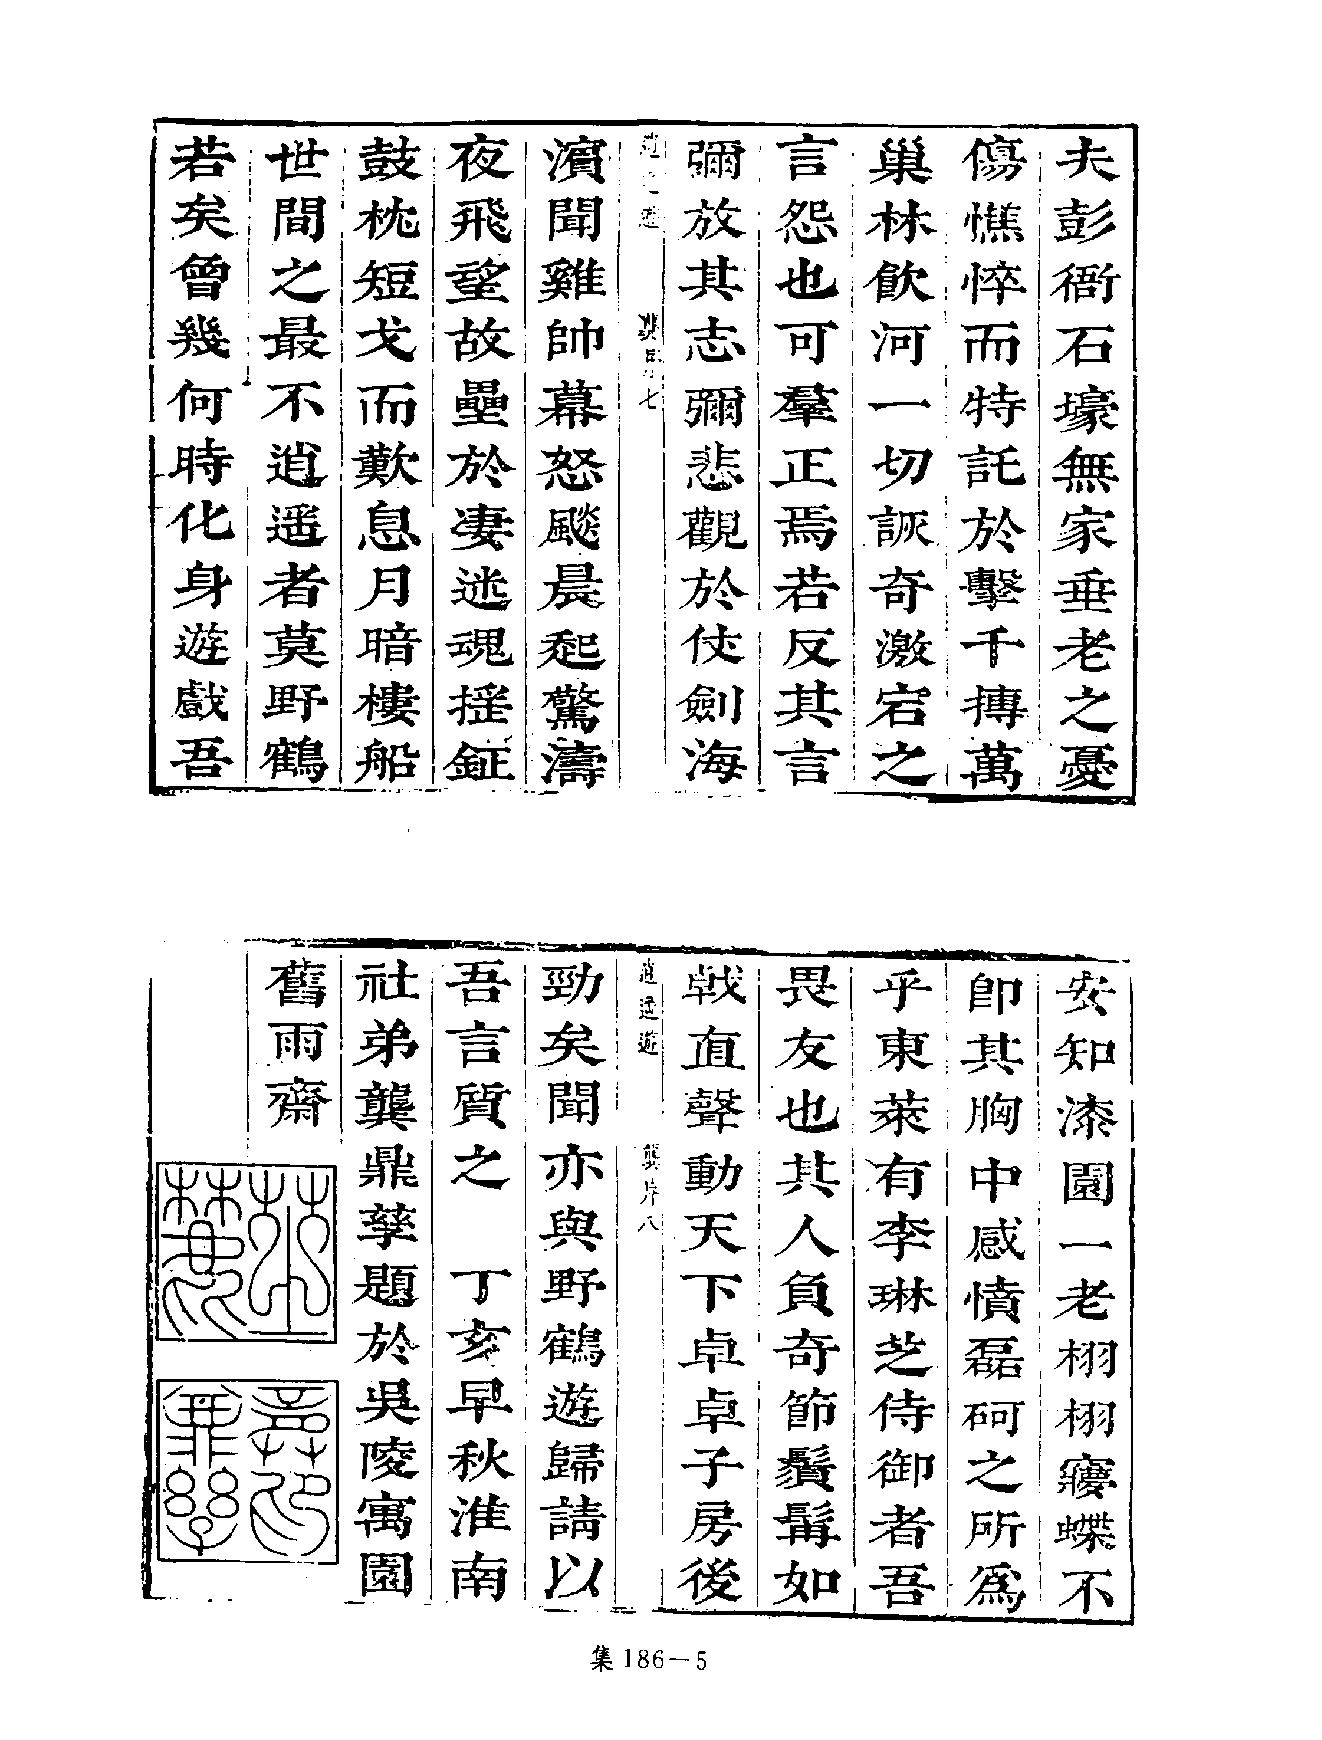 夫彭衙石壕無家垂老之憂
傷憔悴而特託於擊千摶萬
巢林飲河一切詼奇激宕之
言怨也可羣正焉若反其言
彌放其志彌悲觀於仗劍海
濵聞雞帥幕怒飈晨起驚濤
夜飛望故壘於凄迷魂搖鉦
鼓枕短戈而歎息月暗樓船
世間之最不逍遥者莫野鶴
若矣曾幾何時化身遊戲吾
安知漆園一老栩栩㝱蝶不
卽其胸中感憤磊砢之所爲
乎東萊有李琳芝侍御者吾
畏友也其人負奇節鬚髯如
戟直聲動天下卓卓子房後
逍遥遊 龔序八
勁矣聞亦與野鶴遊歸請以
吾言質之 丁亥早秋淮南
社弟龔鼎孳題於吳陵寓園
舊雨齋
集186-5